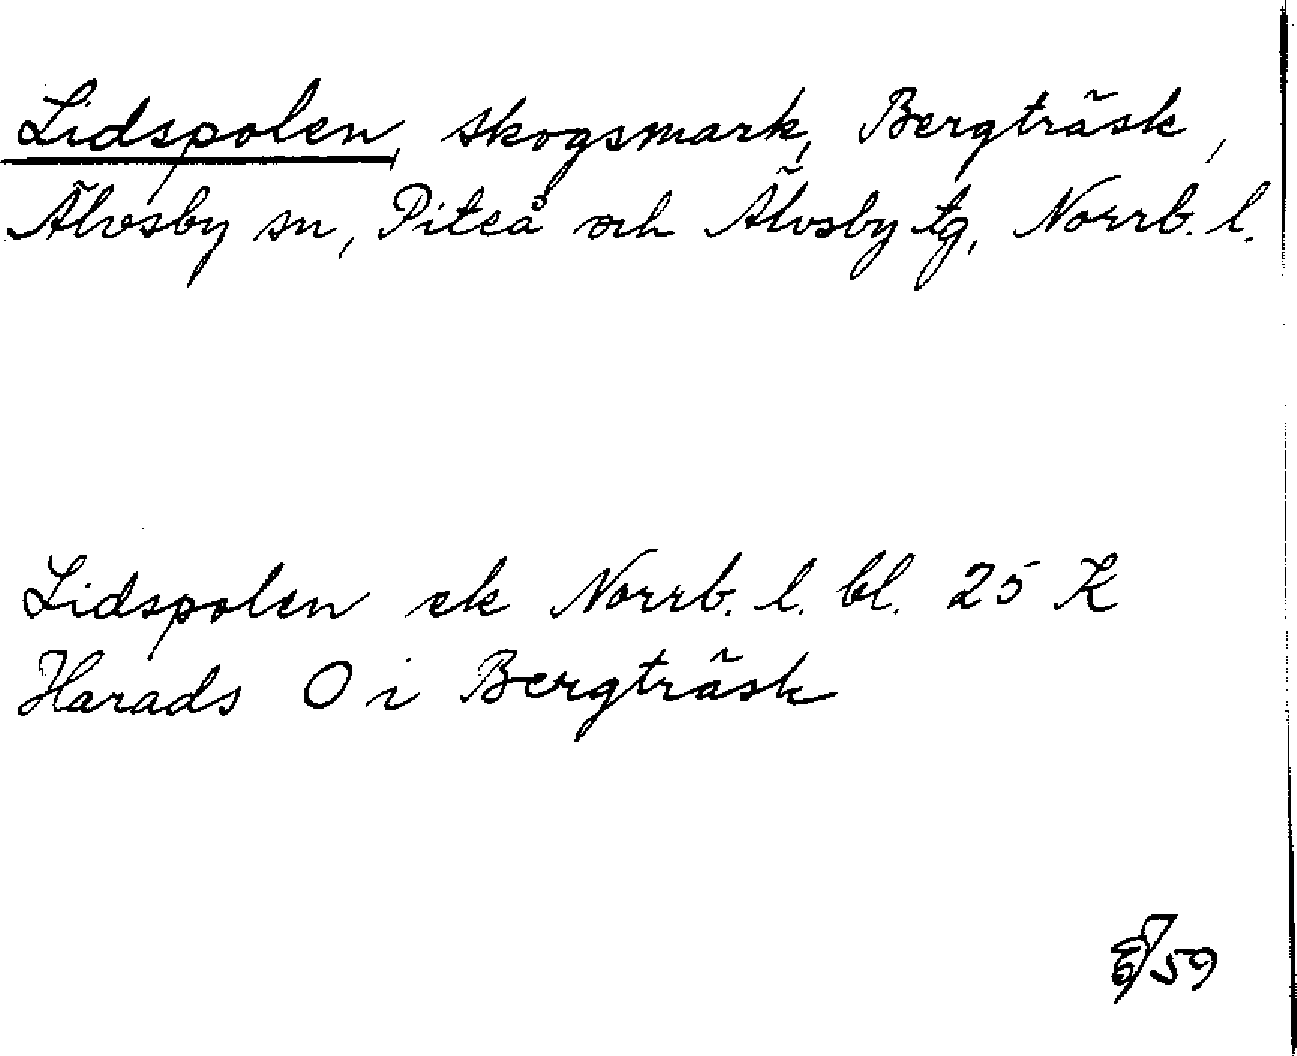 Lidspolen, skogsmark, Bergträsk,
Älvsby sn, Piteå och Älvsby tg, Norrb. l.
Lidspolen ek Norrb. l. bl. 25 K
Harads O i Bergträsk
59